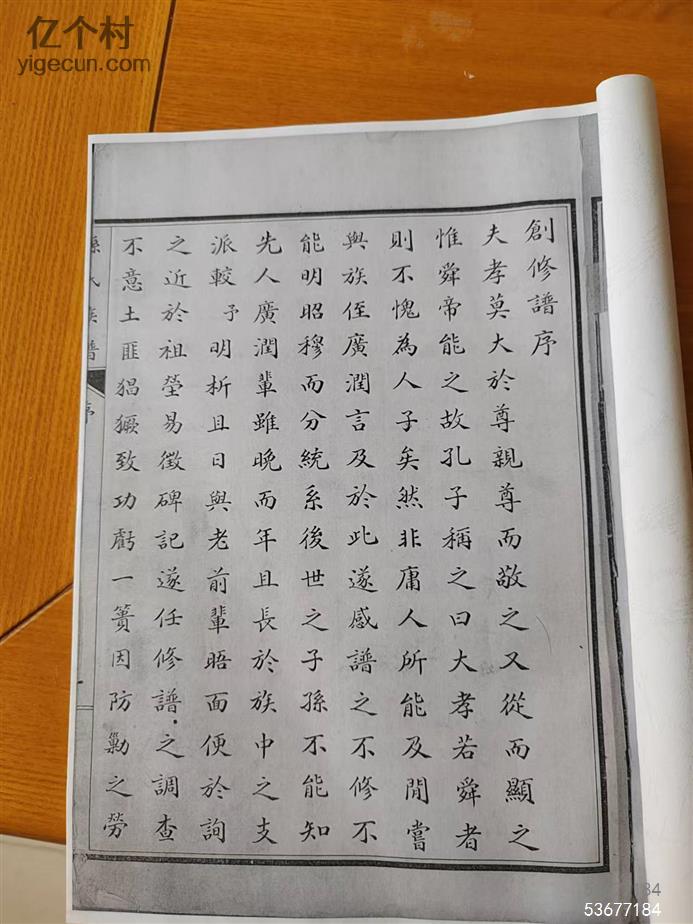 亿个村
yigecun.com
創修譜序
夫孝莫大於尊親尊而敬之又從而顯之
惟舜帝能之故孔子稱之曰大孝若舜者
則不愧為人子矣然非庸人所能及閒嘗
與族侄廣潤言及於此遂感譜之不修不
能明昭穆而分統系後世之子孫不能知
先人廣潤輩雖晚而年且長於族中之支
派較予明析且日與老前輩晤面便於詢
之近於祖塋易徵碑記遂任修譜之調查
不意土匪猖獗致功虧一簣因防勦之勞
氏族譜
序
84
53677184